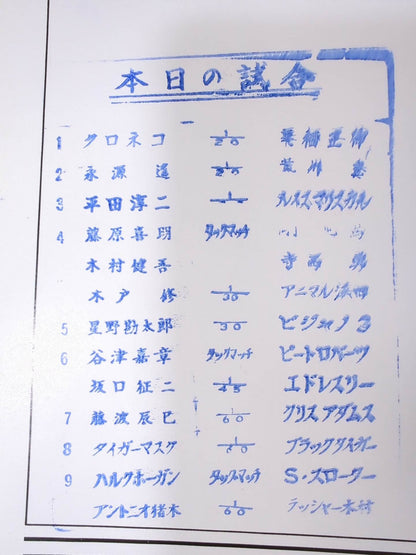 本日の試合
1 クロネコ 1/20 栗栖正伸
2 永源遙 1/20 荒川
3 平田淳二 ルイス・マリスカル
4 藤原喜明 タッグマッチ
木村健吾 寺西勇
木戸修 1/30 アニマル浜口
5 星野勘太郎 1/30
6 谷津嘉章 タッグマッチ ピートロバーツ
坂口征二 1/45 エドレスリー
7 藤波辰巳 1/60 クリスアダムス
8 タイガーマスク 1/60 ブラックタイガー
9 ハルクホーガン タッグマッチ S・スローター
アントニオ猪木 1/60 ラッシャー木村